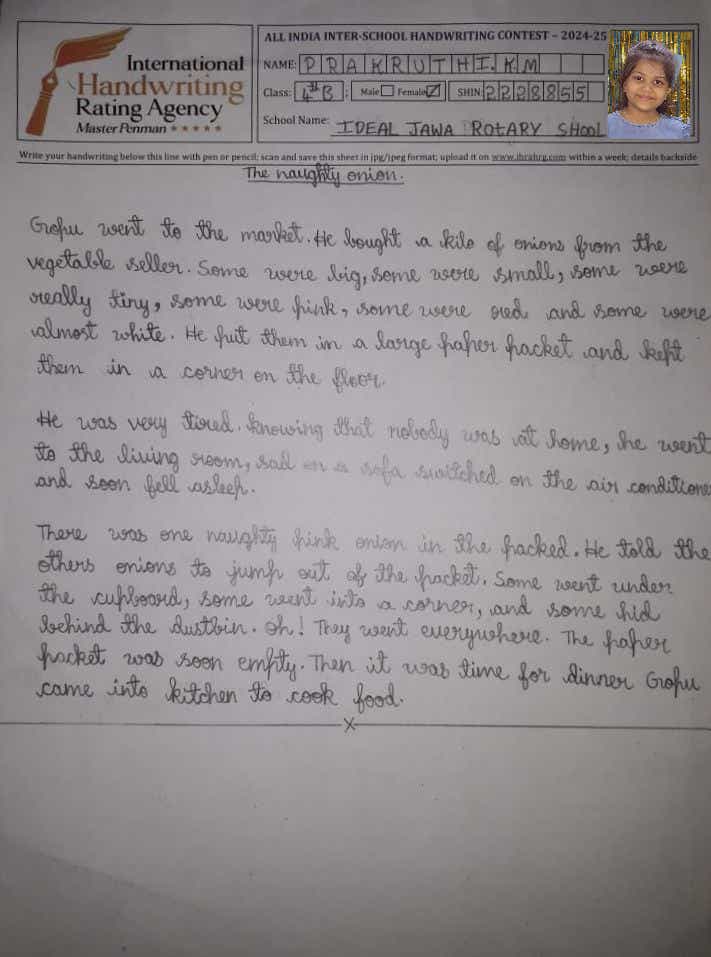 International
Handwriting
Rating Agency
Master Penman ★★★★★
ALL INDIA INTER-SCHOOL HANDWRITING CONTEST – 2024-25
NAME: PRAKRUTHI.KM
Class: 4th B ; Male Female ✓ SHIN: 2228855
School Name: IDEAL JAWA ROTARY SHOOL
Write your handwriting below this line with pen or pencil; scan and save this sheet in jpg/jpeg format; upload it on www.ihrahrg.com within a week; details backside
The naughty onion.
Gopu went to the market. He bought a kilo of onions from the
vegetable seller. Some were big, some were small, some were
really tiny, some were pink, some were red and some were
almost white. He put them in a large paper packet and kept
them in a corner on the floor.
He was very tired. knowing that nobody was at home, he went
to the living room, sad on a sofa switched on the air conditione
and soon fell asleep.
There was one naughty pink onion in the packed. He told the
others onions to jump out of the packet. Some went under
the cupboard, some went into a corner, and some hid
behind the dustbin. Oh! They went everywhere. The paper
packet was soon empty. Then it was time for dinner Gopu
came into kitchen to cook food.
X